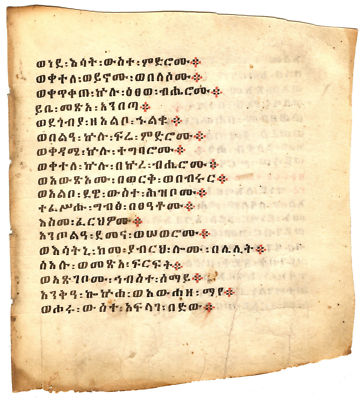 ወነደ፡እሳት፡ውስተ፡ምድሮሙ።
ወቀተለ፡ወይኖሙ፡ወበለሶሙ።
ወቀጥቀጠ፡ኵሎ፡ዕፀወ፡ብሔሮሙ።
ይቤ፡መጽአ፡አንበጣ።
ወደጎብያ፡ዘአልቦ፡ኁልቈ።
ወበልዐ፡ኵሎ፡ፍሬ፡ምድሮሙ።
ወቀዳሜ፡ኵሉ፡ተግባሮሙ።
ወቀተለ፡ኵሎ፡በኵረ፡ብሔሮሙ።
ወአውጽኦሙ፡በወርቅ፡ወበብሩር።
ወአልቦ፡ደዌ፡ውስተ፡ሕዝቦሙ።
ተፈሥሑ፡ግብፅ፡በፀአቶሙ።
እስመ፡ፈርህዎሙ።
አንጦልዐ፡ደመና፡ወሠወሮሙ።
ወእሳትኒ፡ከመ፡ያብርህ፡ሎሙ፡በሌሊት።
ሰአሉ፡ወመጽአ፡ፍርፍርት።
ወአጽገቦሙ፡ኅብስተ፡ሰማይ።
አንቅዐ፡ኰኵሐ፡ወአውሐዘ፡ማየ።
ወሖሩ፡ውስተ፡አፍላገ፡በድው።